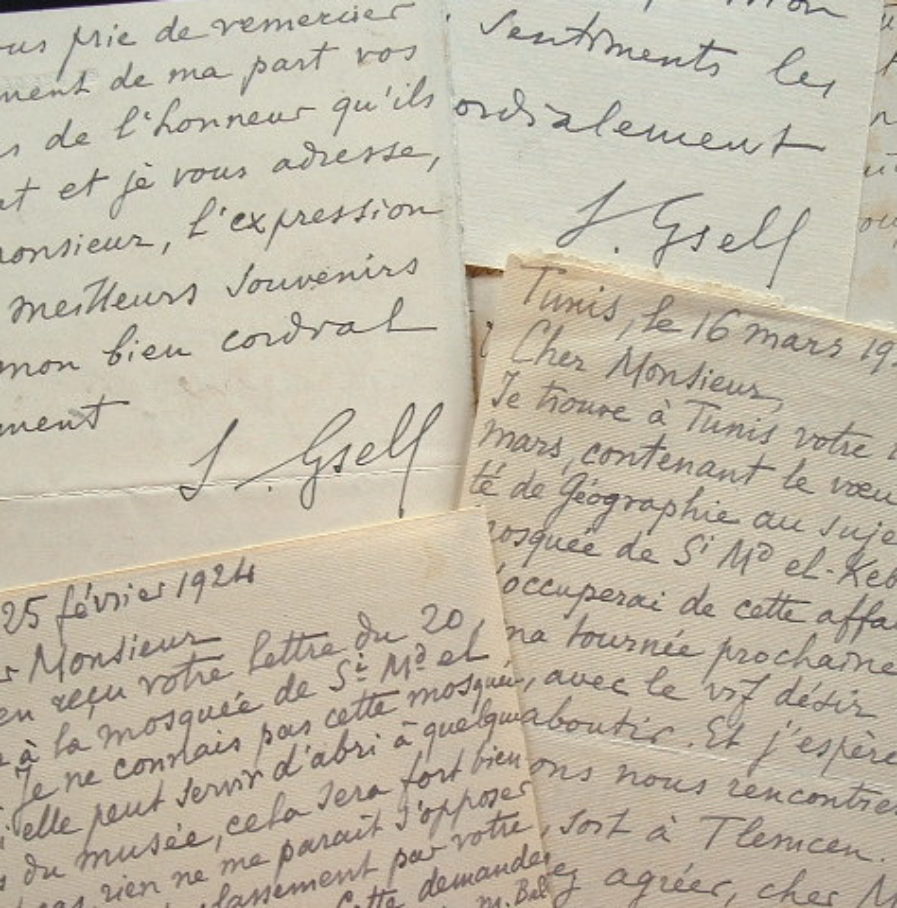 ous prie de remercier
ment de ma part vos
s de l'honneur qu'ils
nt et je vous adresse,
monsieur, l'expression
meilleurs souvenirs
mon bien cordial
ment
S. Gsell
sentiments les
ordialement
S. Gsell
Tunis, le 16 mars 19
Cher Monsieur,
Je trouve à Tunis votre
mars, contenant le vœu
té de Géographie au suje
osquée de Si Md el-Keb
'occuperai de cette affa
ma tournée prochaine
, avec le vif désir
aboutir. Et j'espère
ons nous rencontrer
, soit à Tlemcen.
ez agréer, cher M
25 février 1924
r Monsieur
en reçu votre lettre du 20,
à la mosquée de Si Md el
Je ne connais pas cette mosquée,
elle peut servir d'abri à quelque
s du musée, cela sera fort bien
cas, rien ne me paraît s'opposer
classement par votre
Cette demande
M. Bel